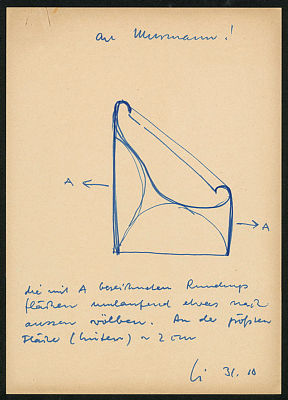 an Uhrmann!
A
A
die mit A bezeichneten Rundungs
flächen umlaufend etwas nach
aussen wölben. An der größten
Fläche (hinten) ~ 2 cm
31. 10